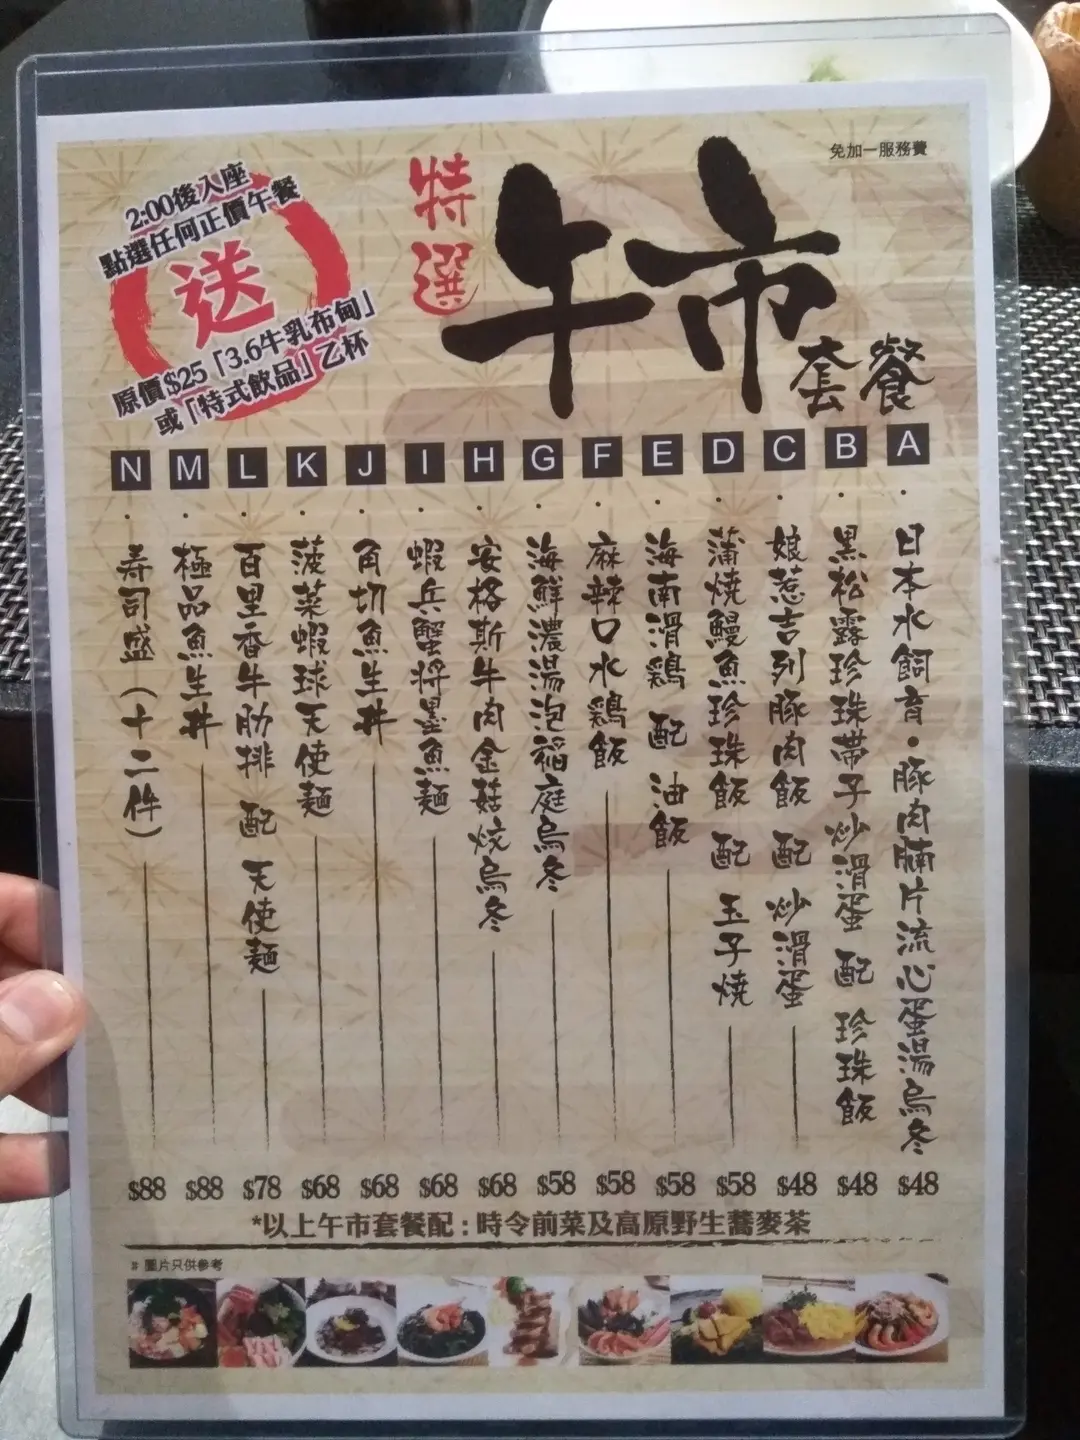 免加一服務費
特選
午市
套餐
2:00後入座
點選任何正價午餐
送
原價$25「3.6牛乳布甸」
或「特式飲品」乙杯
A．日本水飼育・豚肉腩片流心蛋湯烏冬 $48
B．黑松露珍珠帶子炒滑蛋 配 珍珠飯 $48
C．娘惹吉列豚肉飯 配 炒滑蛋 $48
D．蒲燒鰻魚珍珠飯 配 玉子燒 $58
E．海南滑鶏 配 油飯 $58
F．麻辣口水鶏飯 $58
G．海鮮濃湯泡稲庭烏冬 $58
H．安格斯牛肉金菇炆烏冬 $68
I．蝦兵蟹将墨魚麵 $68
J．角切魚生丼 $68
K．菠菜蝦球天使麵 $68
L．百里香牛肋排 配 天使麵 $78
M．極品魚生丼 $88
N．寿司盛（十二件） $88
*以上午市套餐配：時令前菜及高原野生蕎麥茶
# 圖片只供參考